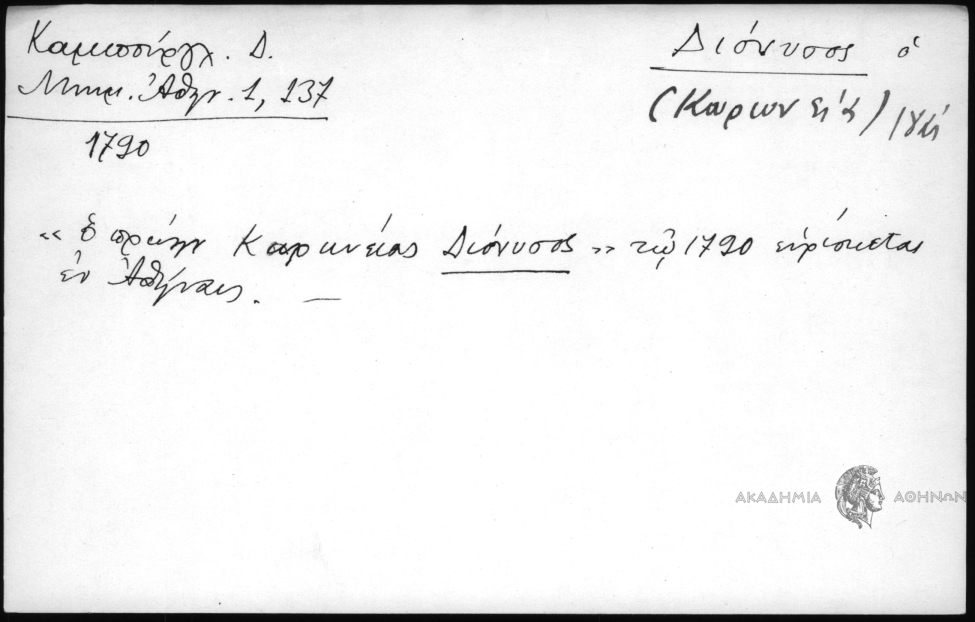 Καμπούργλ. Δ.
Μνημ. Ἀθην. 1, 137
1790
Διόνυσος ὁ
(Καρυων εία)
« ὁ πρώην Καρυνείας Διόνυσος » τῷ 1790 εὑρίσκεται
ἐν Ἀθήναις. —
ΑΚΑΔΗΜΙΑ ΑΘΗΝΩΝ